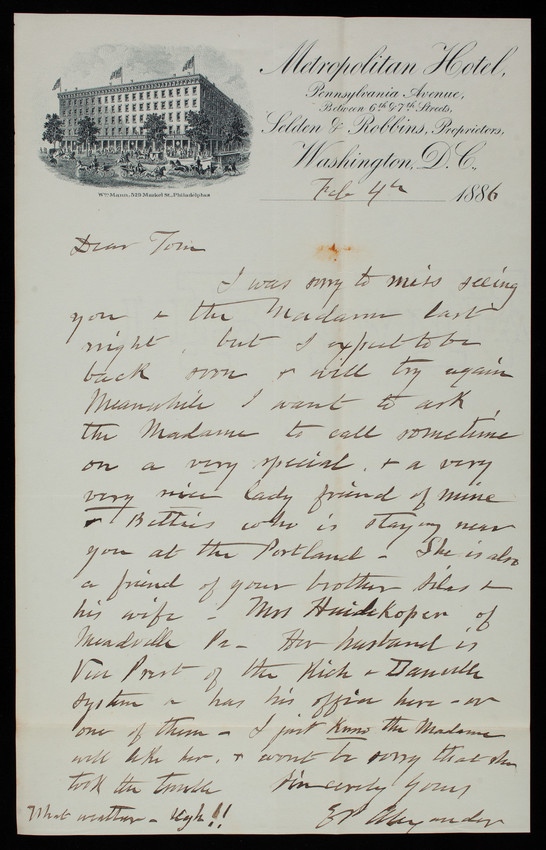 Metropolitan Hotel,
Pennsylvania Avenue,
Between 6th & 7th Streets,
Selden & Robbins, Proprietors,
Washington, D.C.,
Wm Mann, 529 Market St., Philadelphia
Feb 4th 1886
Dear Tom
I was sorry to miss seeing
you & the Madame last
night, but I expect to be
back soon & will try again
Meanwhile I want to ask
the Madame to call sometime
on a very special, & a very
very nice lady friend of mine
& Bettie's who is staying near
you at the Portland - She is also
a friend of your brother Silas &
his wife - Mrs Huidekoper of
Meadville Pa - Her husband is
Vice Prest of the Rich & Danville
system & has his office here - or
one of them - I just know the Madame
will like her, & wont be sorry that she
took the trouble Sincerely Yours
What weather - Ugh!! EP Alexander